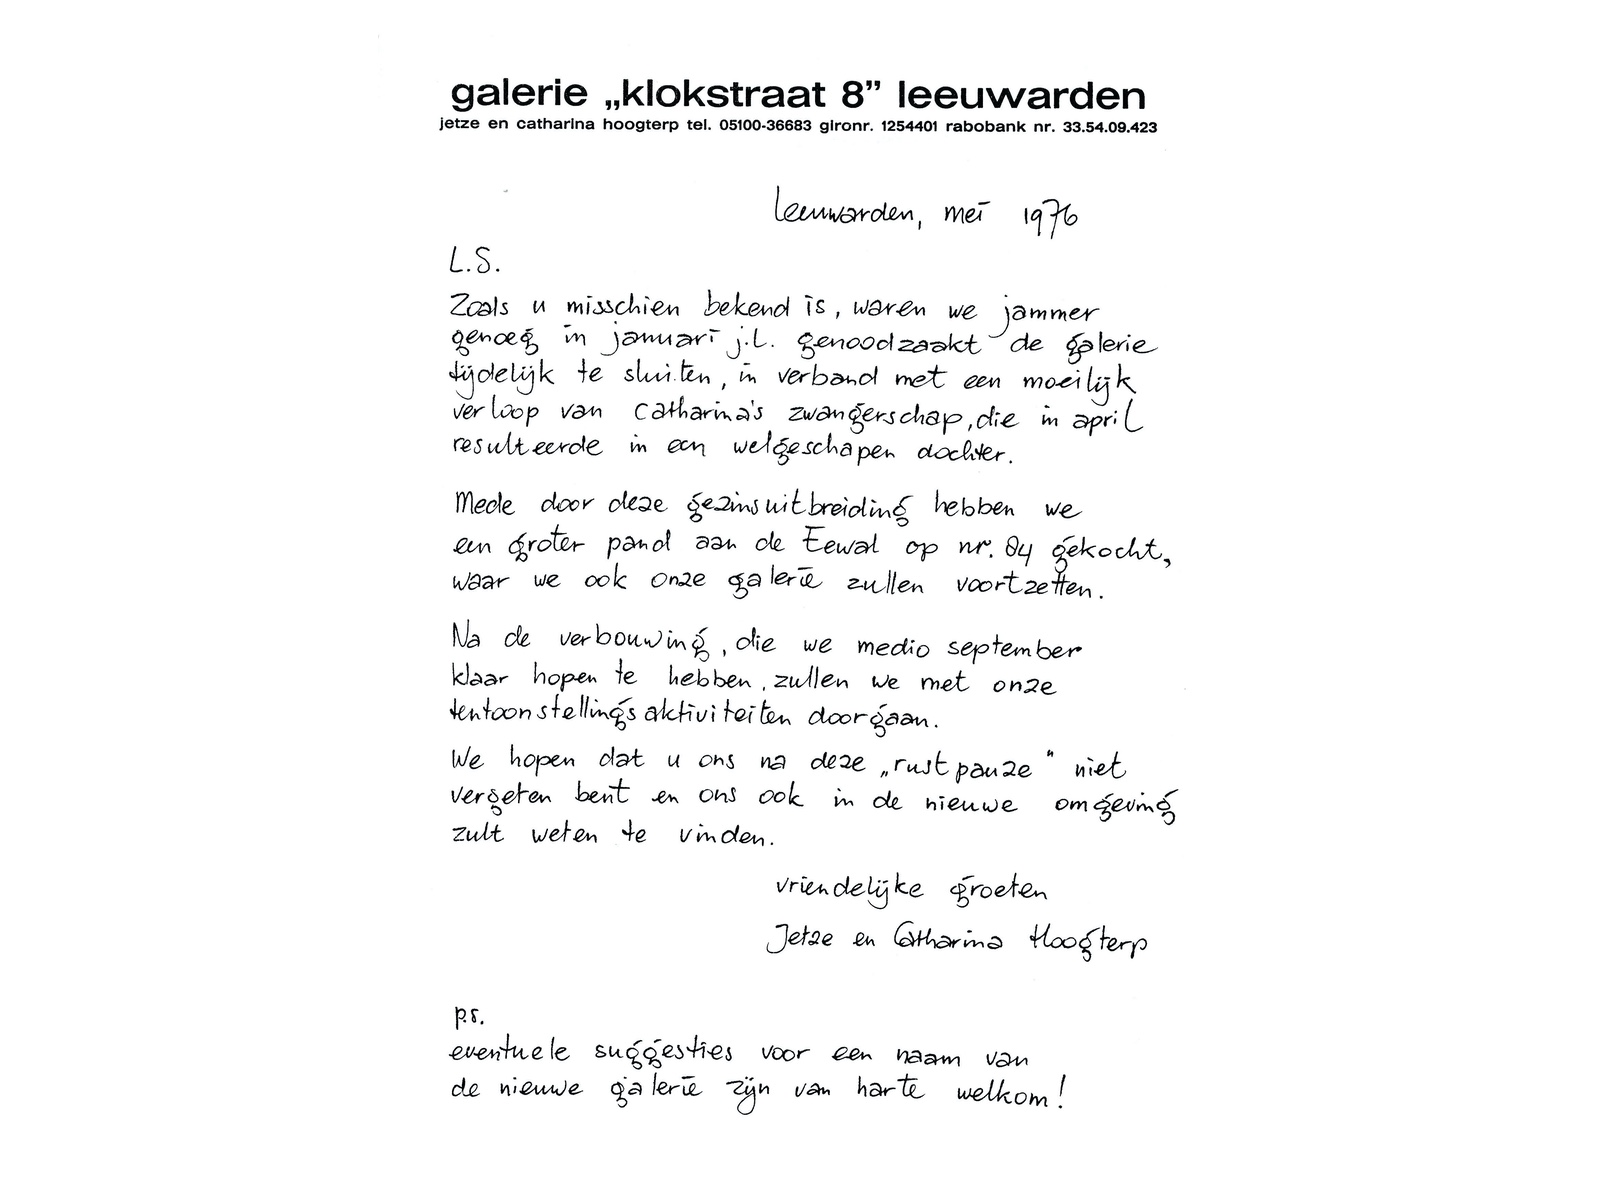 galerie „klokstraat 8” leeuwarden
jetze en catharina hoogterp tel. 05100-36683 gironr. 1254401 rabobank nr. 33.54.09.423
Leeuwarden, mei 1976
L.S.
Zoals u misschien bekend is, waren we jammer
genoeg in januari j.l. genoodzaakt de galerie
tijdelijk te sluiten, in verband met een moeilijk
verloop van Catharina's zwangerschap, die in april
resulteerde in een welgeschapen dochter.
Mede door deze gezinsuitbreiding hebben we
een groter pand aan de Eewal op nr. 84 gekocht,
waar we ook onze galerie zullen voortzetten.
Na de verbouwing, die we medio september
klaar hopen te hebben, zullen we met onze
tentoonstellingsaktiviteiten doorgaan.
We hopen dat u ons na deze „rustpauze" niet
vergeten bent en ons ook in de nieuwe omgeving
zult weten te vinden.
vriendelijke groeten
Jetze en Catharina Hoogterp
p.s.
eventuele suggesties voor een naam van
de nieuwe galerie zijn van harte welkom!